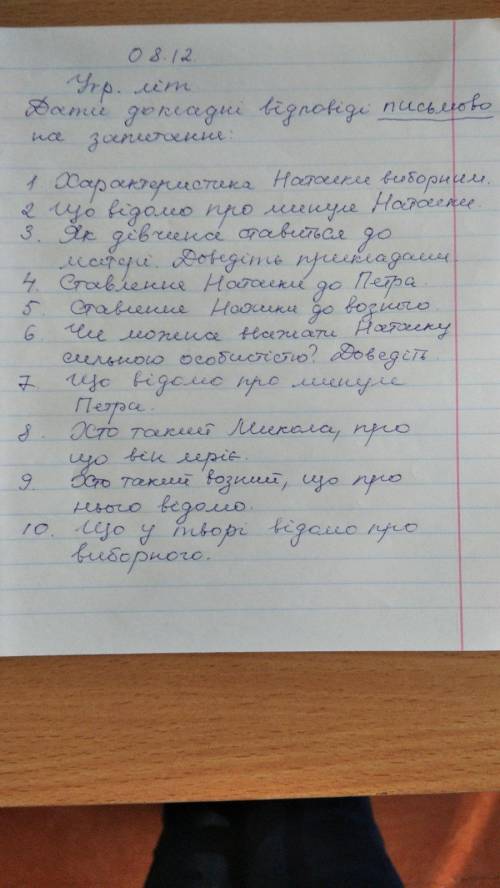 08.12.
Укр. літ
Дати докладні відповіді письмово
на запитання:
1 Характеристика Наталки виборним.
2 Що відомо про минуле Наталки.
3. Як дівчина ставиться до
матері. Доведіть прикладами.
4. Ставлення Наталки до Петра.
5 Ставлення до возного.
6 Чи можна назвати Наталку
сильною особистістю? Доведіть.
7. Що відомо про минуле
Петра.
8. Хто такий Микола, про
що він мріє.
9. Хто такий возний, що про
нього відомо.
10. Що у творі відомо про
виборного.